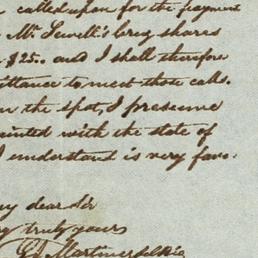 called upon for the payment
Mr. Sewell's long shares
$25.. and I shall therefore
ittance to meet those calls.
on the spot, I presume
ainted with the state of
I understand is very favo-
my dear Sir
truly yours